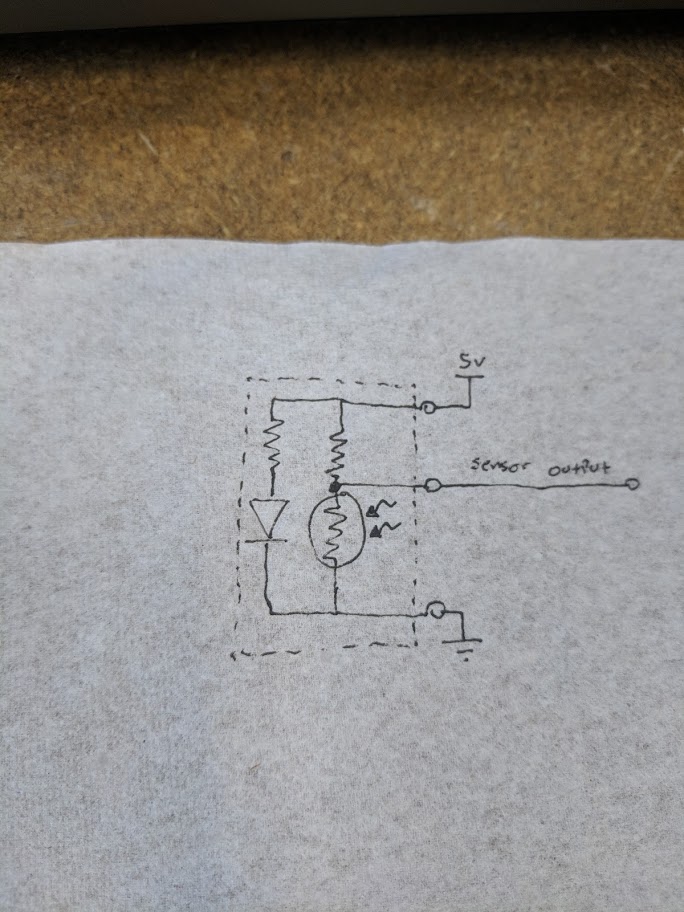 5v
sensor output